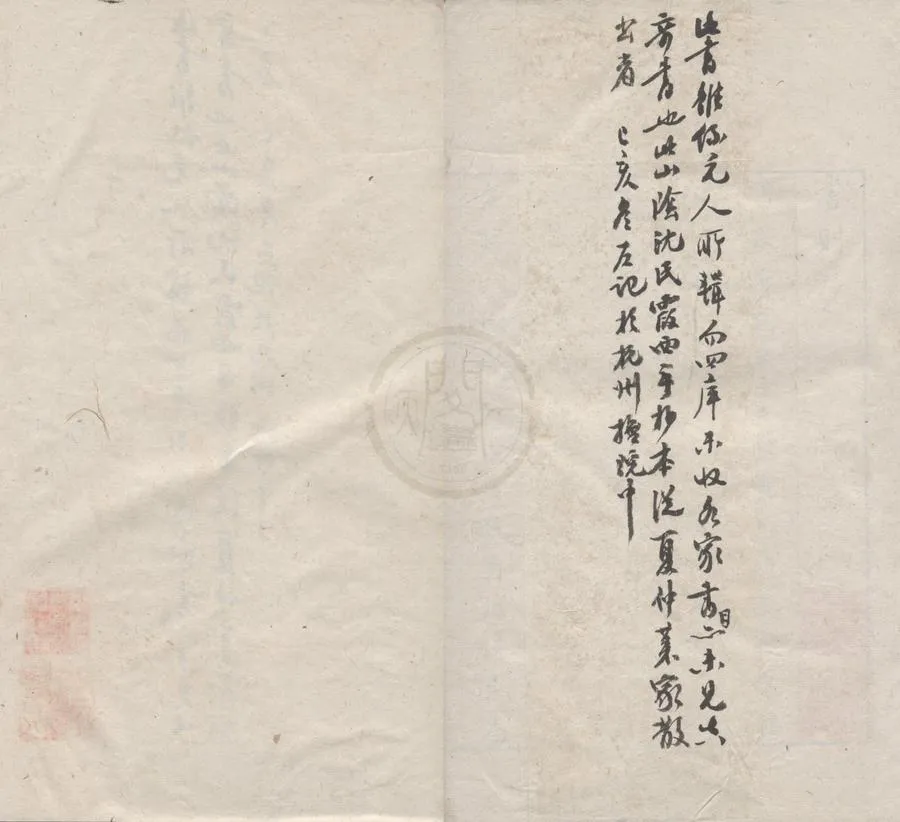 此書雖係元人所輯而四庫未收各家書目亦未見真
奇書也此山陰沈氏霞西手抄本從夏仲 家散
出者　己亥冬 記於杭州 院中